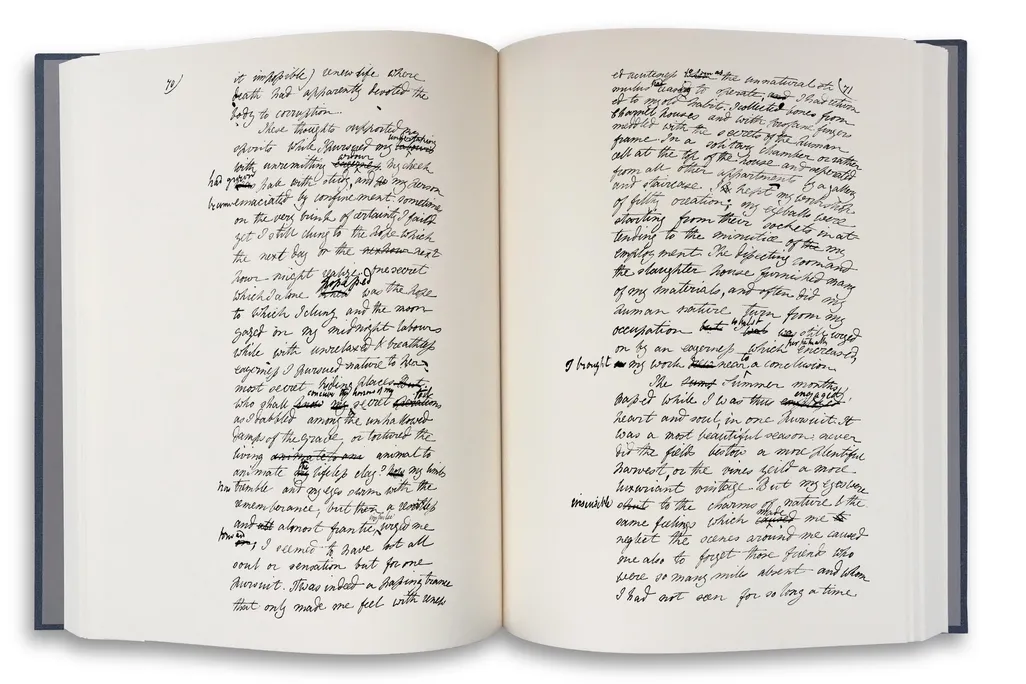 70)
it impossible) renew life where
death had apparently devoted the
body to corruption.
These thoughts supported my
spirits while I pursued my undertaking
with unremitting ardour. My cheek
had grown pale with study, and my person
become emaciated by confinement. sometimes
on the very brink of certainty I failed
yet I still clung to the hope which
the next day or the next
hour might realize. One secret
which I alone possessed was the hope
to which I clung and the moon
gazed on my midnight labours
while with unrelaxed & breathless
eagerness I pursued nature to her
most secret hiding places.
who shall conceive the horrors of my secret toil
as I dabbled among the unhallowed
damps of the grave, or tortured the
living animal to
animate the lifeless clay? my limbs
now tremble and my eyes swim with the
remembrance, but then a resistless
and almost frantic impulse urged me
forward, I seemed to have lost all
soul or sensation but for one
pursuit. It was indeed a passing trance
that only made me feel with renew
71
ed acuteness the unnatural sti
mulus ceasing to operate, I had return
ed to my old habits. I collected bones from
charnel houses and with profane fingers
meddled with the secrets of the human
frame. In a solitary chamber or rather
cell at the top of the house and seperated
from all other appartments by a gallery
and staircase I kept my workshop
of filthy creation; my eyeballs were
starting from their sockets in at-
tending to the minutiæ of my
employment. The disecting room and
the slaughter house furnished many
of my materials, and often did my
human nature turn from my
occupation still urged
on by an eagerness which perpetually encreased,
I brought my work near to a conclusion
The Summer months
passed while I was thus engaged,
heart and soul, in one pursuit. It
was a most beautiful season; never
did the fields bestow a more plentiful
harvest, or the vines yeild a more
luxuriant vintage. But my eyes were
insensible to the charms of nature & the
same feelings which made me
neglect the scenes around me caused
me also to forget those friends who
were so many miles absent and whom
I had not seen for so long a time